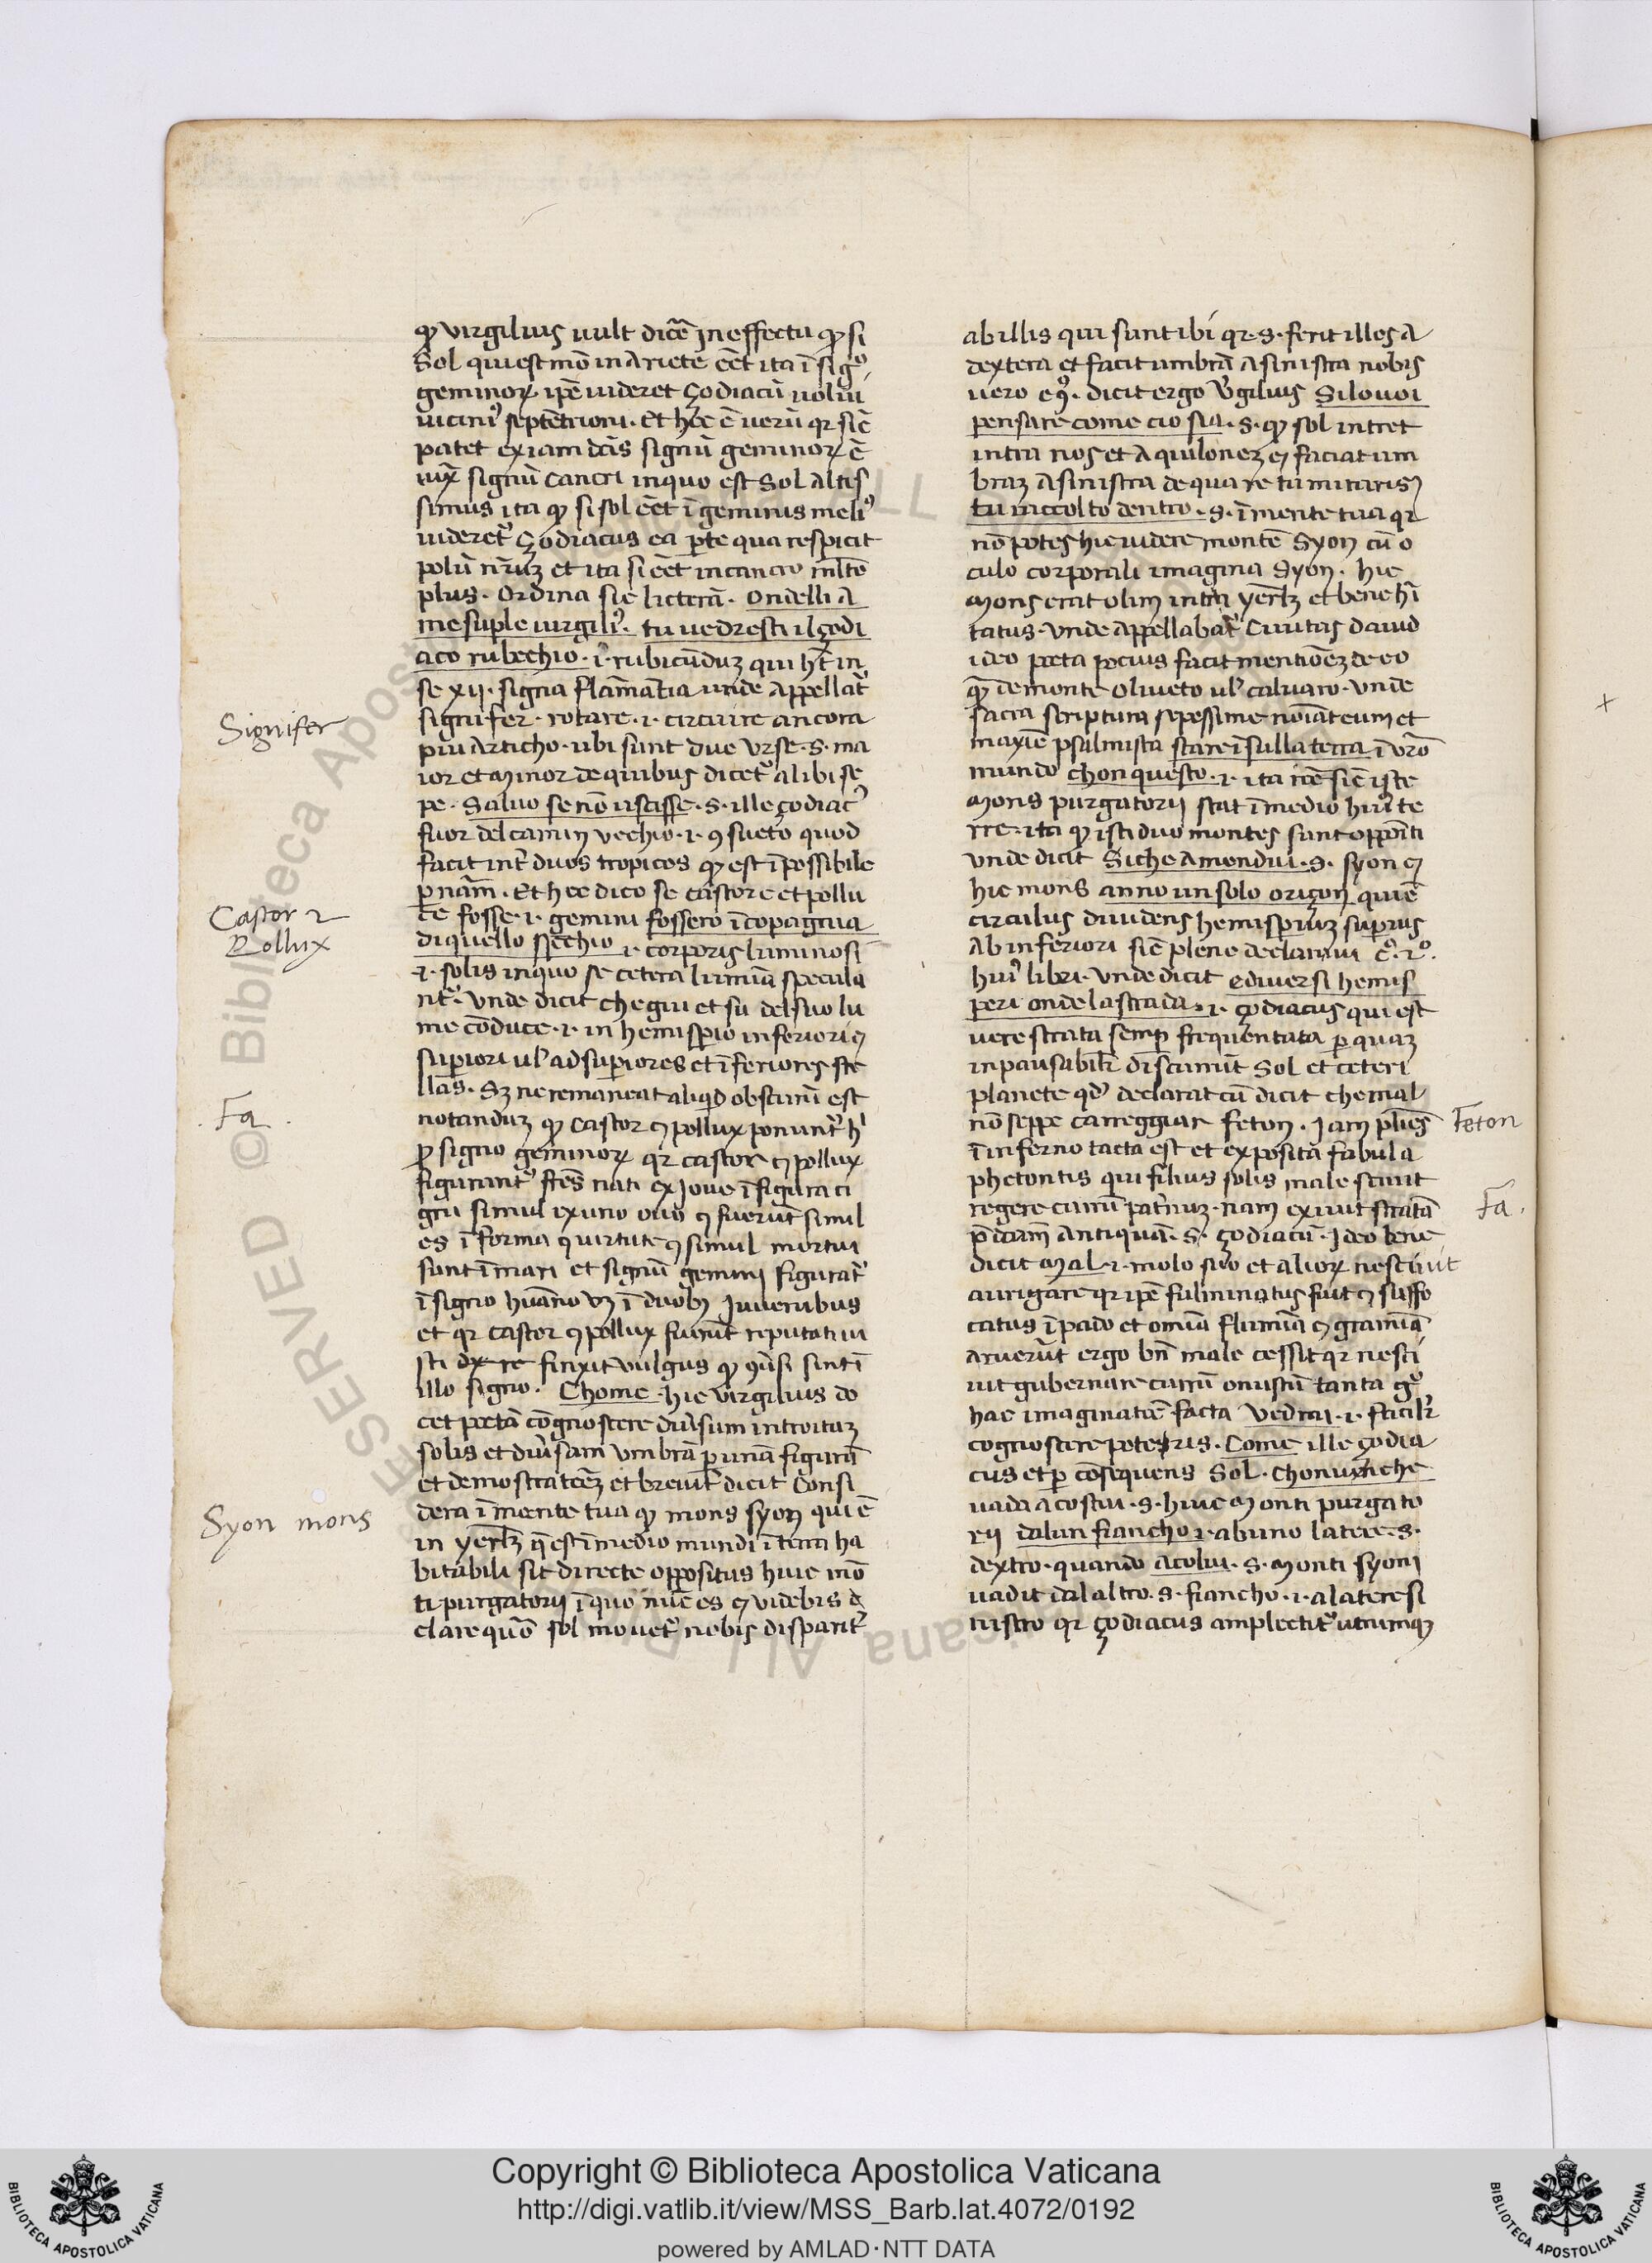 ꝙ virgilius uult dicẽ in effectu ꝙ si
Sol qui est mõ in Ariete ẽet ita ĩ sigº
geminoꝝ ipẽ uideret çodiacũ uolui
uiciniꝰ septẽtrioni. Et hec ẽ ueruʒ qr sic̃
patet ex iam dc̃is signũ geminoꝝ ẽ
iux̃ signũ Cancri in quo est Sol altis
simus ita ꝙ si sol ẽet ĩ geminis meliꝰ
uideretʳ çodiacus ea ꝑte qua respicit
polũ nr̃uʒ et ita si ẽet in cancro ml̃to
plus. Ordina sic licterã. Ondelli a
me suple virgiliꝰ. tu uedresti il çodi
aco rubechio .i. rubicũduʒ qui hʒ in
se xij. signa flãmantia unde appellatʳ
signifer. rotare .i. circuire ancora
piu Articho. ubi sunt due vrse .s. ma
ior et minor de quibus dicetʳ alibi se
pe. Saluo se nõ uscisse .s. ille çodiacꝰ
fuor del camin vechio .i. ꝯsueto quod
facit intʳ duos tropicos ꝙ est ĩpossibile
ꝑ nãm. Et hec dico se castore et pollu
ce fosse .i. gemini fossero ĩ cõpagnia
di quello spechio .i. corporis luminosi
.i. solis in quo se cetera lumĩa specula
ntʳ. Vnde dicit che giu et su del suo lu
me cõduce .i. in hemisperio inferiori ⁊
superiori ul̃ ad supiores et ĩferiores ste
llas. Sʒ ne remaneat aliquid obscurũ est
notanduʒ ꝙ Castor ⁊ pollux ponuntʳ hⁱ
ꝓ signo geminoꝝ qr castor ⁊ pollux
figurantʳ fr̃es nati ex Joue ĩ figura ci
gni simul ex uno ouo ⁊ fuerũt simil
es ĩ forma ⁊ uirtute ⁊ simul mortui
sunt ĩ mari et signũ gemini figuratʳ
ĩ signo huãno uʒ ĩ duobꝫ Juuenibus
et qr castor ⁊ pollux fuerũt reputati iu
sti finxit vulgus ꝙ ꝯũsi sint ĩ
illo signo. Chome. hic virgilius do
cet poetã cõgnoscere diũsum introituʒ
solis et diũsam vmbrã ꝑ unã figurã
et demostratõeʒ et breuit̃ dicit Consi
dera ĩ mente tua ꝙ mons syon qui ẽ
in yerlʒ q̃ est ĩ medio mundi ĩ terra ha
bitabili sit directe oppositus huic mõ
ti purgatorij ĩ quo nũc es ⁊ videbis de
clare quõ sol mouetʳ nobis disparitʳ
ab illis qui sunt ibi qr .s. ferit illos a
dextera et facit umbrã a sinistra nobis
uero eꝯ. dicit ergo Vʳgilius Si lo uoi
pensare come cio sia .s. ꝙ sol intret
intra nos et Aquilonez ⁊ faciat um
braʒ a sinistra de qua re tu miraris
tu raccolto dentro .s. ĩ mente tua qr
nõ potes hic uidere montẽ Syon cũ o
culo corporali imagina Syon. hic
mons erat olim intra yerlʒ et bene hĩ
tatus. Vnde appellabatʳ Ciuitas dauid
ideo poeta pocius facit mentiõeʒ de eo
qʒ de monte oliueto ul̃ caluaro. Vnde
sacra scriptura sepessime noĩat eum et
maxiẽ psalmista stare ĩ sulla terra ĩ vr̃o
mundo chon questo .i. ita ñc sic̃ iste
mons purgatorij stat ĩ medio huiꝰ te
rre. ita ꝙ isti duo montes sunt oppõiti
Vnde dicit Si che amendui .s. syon ⁊
hic mons anno un solo oriçon qui ẽ
circulus diuidens hemisperiuʒ supius
ab inferiori sic̃ plene declaraui cº. 2º.
huiꝰ libri. Vnde dicit e diuersi hemis
peri onde la strada .i. çodiacus qui est
uere strata semp frequentata ꝑ quaʒ
inpausabilr̃ discurrũt Sol et ceteri
planete qd̃ declarat cũ dicit che mal
nõ seppe carreggiar feton. Jam pluries
ĩ inferno tacta est et exposita fabula
phetontis qui filius solis male sciuit
regere currũ patr̃nuʒ. nam exiuit stratã
p̃dcãm antiquã .s. çodiacũ. Ideo bene
dicit mal .i. malo suo et alioꝝ nesciuit
aurigare qr ipẽ fulminatus fuit ⁊ suffo
catus ĩ pado et omĩa flumĩa ⁊ gramĩa
aruerũt ergo bñ male cessit qr nesci
uit gubernare currũ onustũ tanta gº
hac imaginatiõe facta Vedrai .i. facilr̃
cognoscere poteris. Come ille çodia
cus et ꝑ cõsequens Sol. chonuien che
uada a costui .s. huic monti purgato
rij dal un fiancho .i. ab uno latere .s.
dextro. quando a colui .s. monti syoni
uadit dal altro .s. fiancho .i. a latere si
nistro qr çodiacus amplectitʳ utrumqꝫ
Signifer
Castor ⁊
Pollux
Fa.
Syon mons
Feton
Fa.
Copyright © Biblioteca Apostolica Vaticana
http://digi.vatlib.it/view/MSS_Barb.lat.4072/0192
powered by AMLAD·NTT DATA
BIBLIOTECA APOSTOLICA VATICANA
BIBLIOTECA APOSTOLICA VATICANA